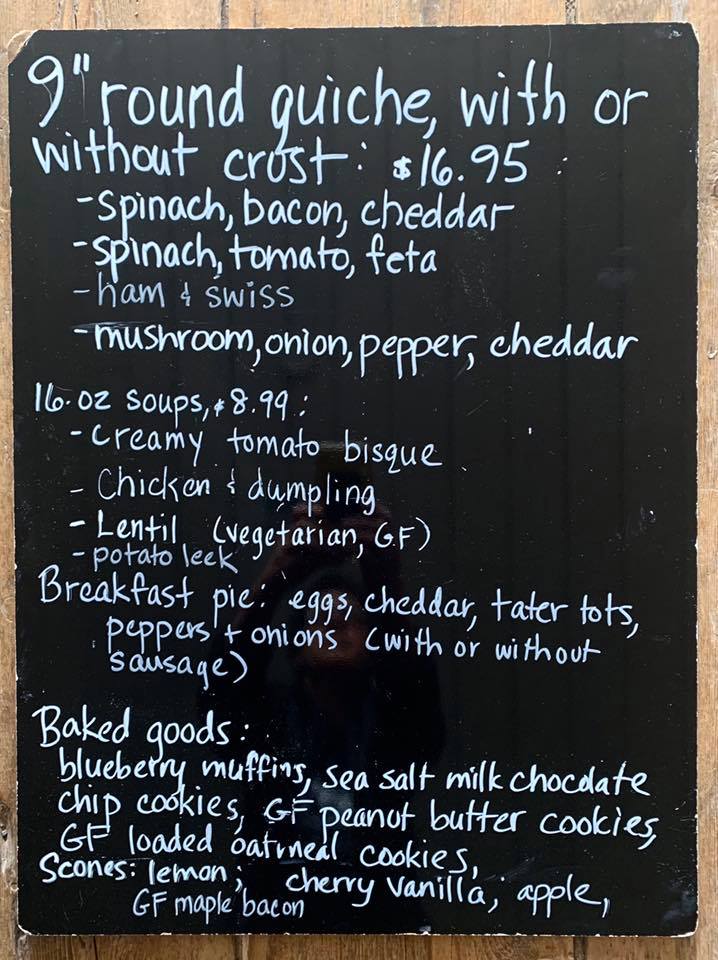 9" round quiche, with or
without crust: $16.95
- spinach, bacon, cheddar
- spinach, tomato, feta
- ham & swiss
- mushroom, onion, pepper, cheddar
16-oz soups, $8.99:
- Creamy tomato bisque
- Chicken & dumpling
- Lentil (vegetarian, GF)
- potato leek
Breakfast pie: eggs, cheddar, tater tots,
peppers + onions (with or without
sausage)
Baked goods:
blueberry muffins, sea salt milk chocolate
chip cookies, GF peanut butter cookies,
GF loaded oatmeal cookies,
Scones: lemon; cherry vanilla; apple,
GF maple bacon